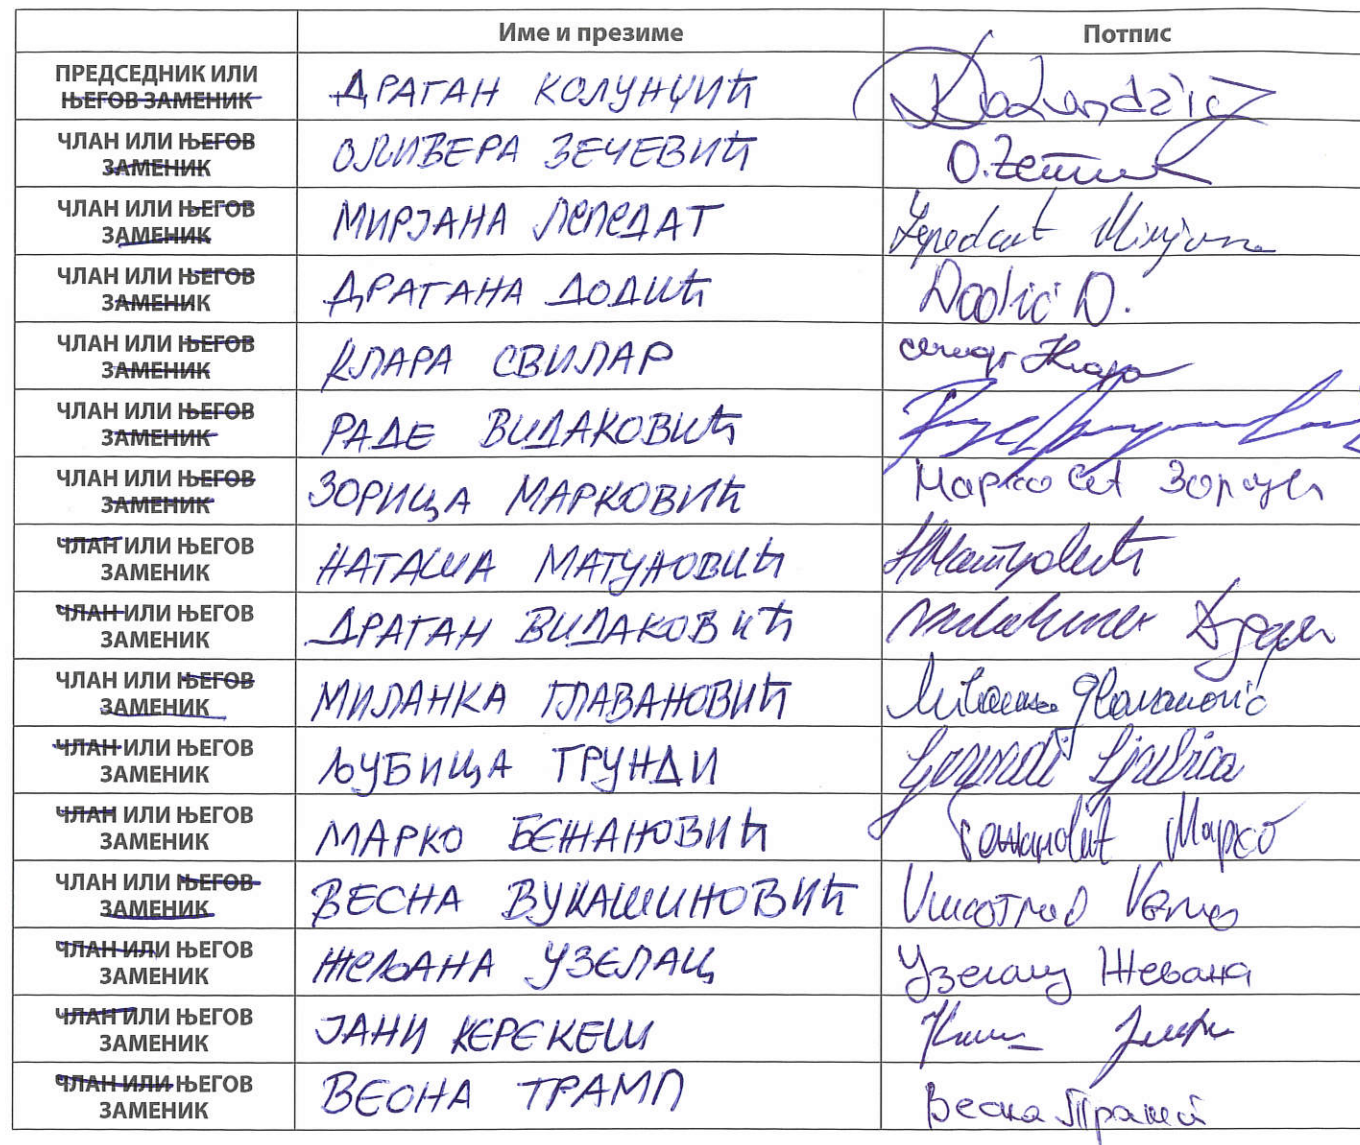 Име и презиме Потпис
ПРЕДСЕДНИК ИЛИ
ЊЕГОВ ЗАМЕНИК
ДРАГАН КОЛУНЏИЋ Kolundzic
ЧЛАН ИЛИ ЊЕГОВ
ЗАМЕНИК
ОЛИВЕРА ЗЕЧЕВИЋ
ЧЛАН ИЛИ ЊЕГОВ
ЗАМЕНИК
МИРЈАНА ЛЕПЕДАТ Lepedat Mirjana
ЧЛАН ИЛИ ЊЕГОВ
ЗАМЕНИК
ДРАГАНА ДОДИЋ Dodić D.
ЧЛАН ИЛИ ЊЕГОВ
ЗАМЕНИК
КЛАРА СВИЛАР
ЧЛАН ИЛИ ЊЕГОВ
ЗАМЕНИК
РАДЕ ВИДАКОВИЋ
ЧЛАН ИЛИ ЊЕГОВ
ЗАМЕНИК
ЗОРИЦА МАРКОВИЋ
ЧЛАН ИЛИ ЊЕГОВ
ЗАМЕНИК
НАТАША МАТУНОВИЋ
ЧЛАН ИЛИ ЊЕГОВ
ЗАМЕНИК
ДРАГАН ВИДАКОВИЋ
ЧЛАН ИЛИ ЊЕГОВ
ЗАМЕНИК
МИЛАНКА ГЛАВАНОВИЋ Milanka Glavanović
ЧЛАН ИЛИ ЊЕГОВ
ЗАМЕНИК
ЉУБИЦА ГРУНДИ Grundi Ljubica
ЧЛАН ИЛИ ЊЕГОВ
ЗАМЕНИК
МАРКО БЕЖАНОВИЋ Марко
ЧЛАН ИЛИ ЊЕГОВ
ЗАМЕНИК
ВЕСНА ВУКАШИНОВИЋ
ЧЛАН ИЛИ ЊЕГОВ
ЗАМЕНИК
ЖЕЉАНА УЗЕЛАЦ Узелац Жељана
ЧЛАН ИЛИ ЊЕГОВ
ЗАМЕНИК
ЈАНИ КЕРЕКЕШ
ЧЛАН ИЛИ ЊЕГОВ
ЗАМЕНИК
ВЕСНА ТРАМП Весна Трамп